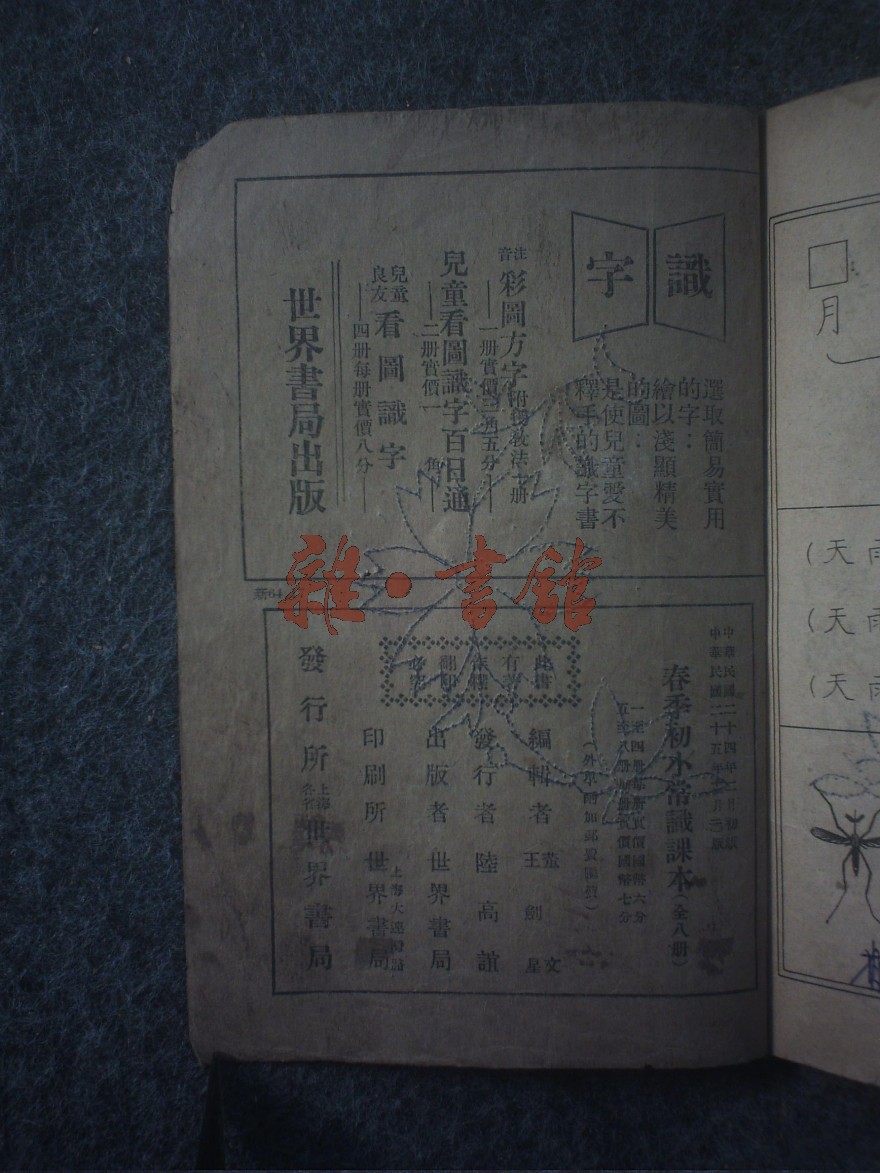 識字
選取簡易實用
的字：
繪以淺顯精美
的圖：
是使兒童愛不
釋手的識字書
注音 彩圖方字 附優教法一册
一册實價 角五分
兒童看圖識字百日通
二册實價一角
兒童良友 看圖識字
四册每册實價八分
世界書局出版
中華民國二十四年 月初版
中華民國二十五年 月 版
春季初小常識課本（全八册）
一至四册每册實價國幣六分
五至八册每册實價國幣七分
（外埠酌加郵費匯費）
此書有著作權翻印必究
編輯者 董文 王劍星
發行者 陸高誼
出版者 世界書局
印刷所 上海大連灣路 世界書局
發行所 上海各省 世界書局
雜·書館
月
（天雨
（天雨
（天雨